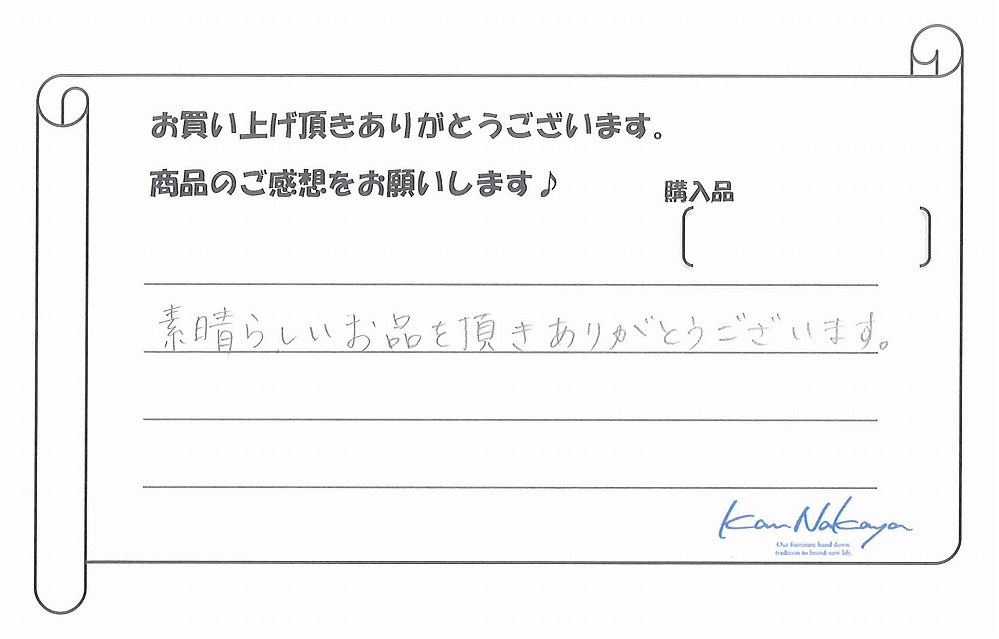 お買い上げ頂きありがとうございます。
商品のご感想をお願いします♪
購入品
素晴らしいお品を頂きありがとうございます。
Kan Nakaya
Our furniture hand down
tradition to brand-new life.